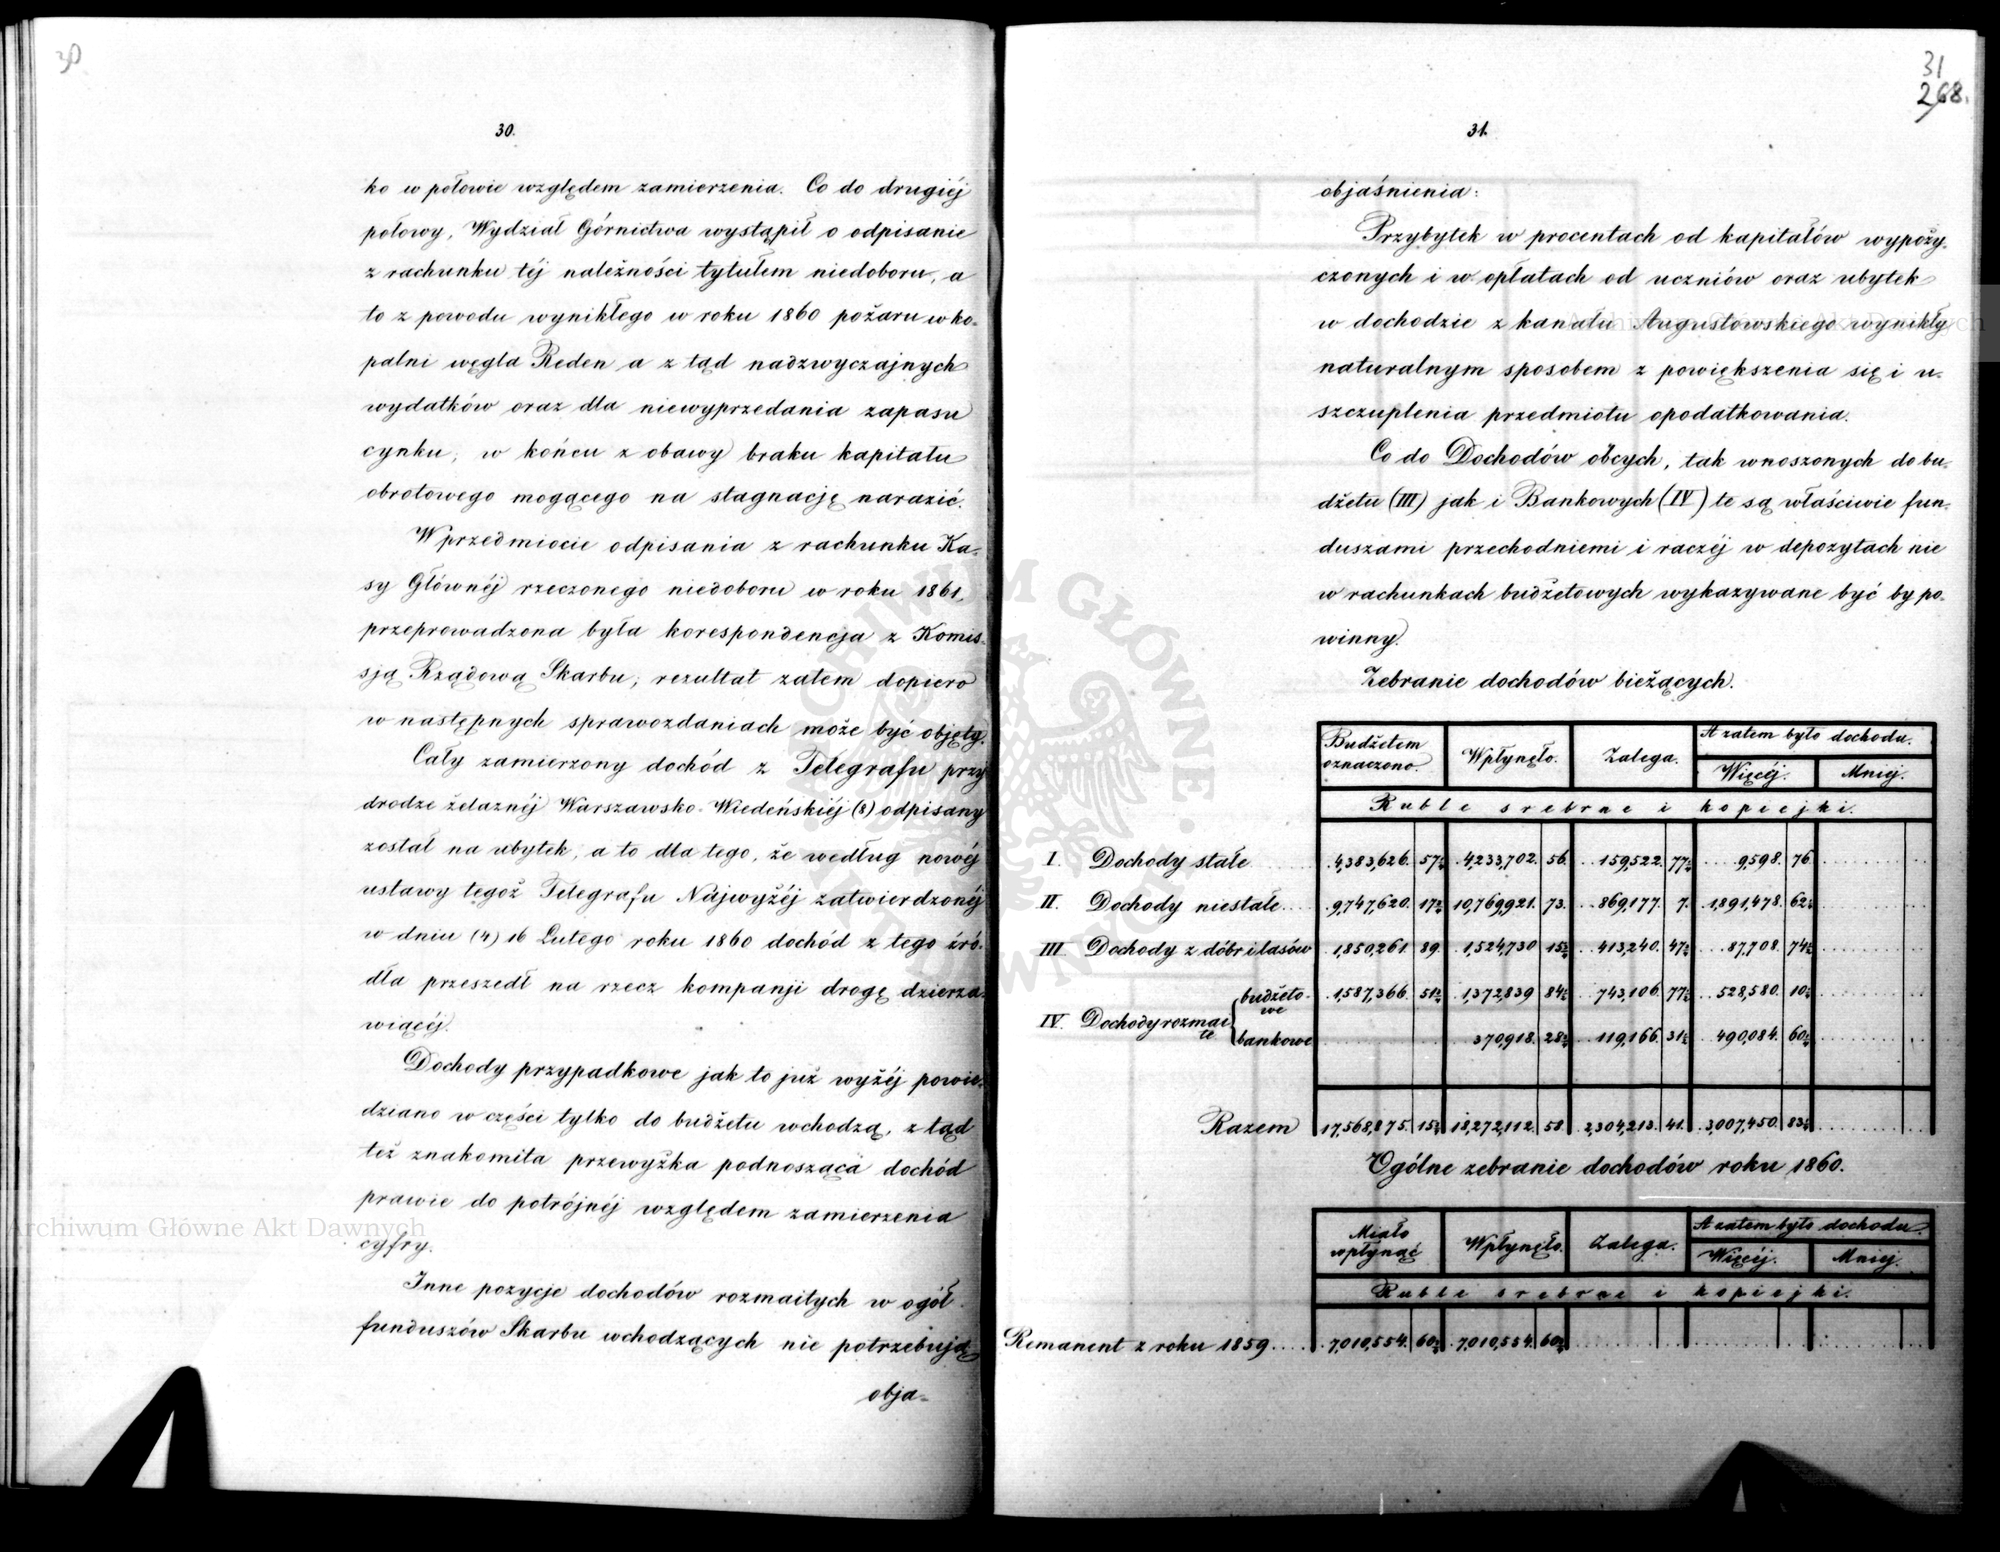 30
30.
ko w połowie względem zamierzenia. Co do drugiéj
połowy, Wydział Górnictwa wystąpił o odpisanie
z rachunku téj należności tytułem niedoboru, a
to z powodu wynikłego w roku 1860 pożaru w ko-
palni węgla Reden a z tąd nadzwyczajnych
wydatków oraz dla niewyprzedania zapasu
cynku, w końcu z obawy braku kapitału
obrotowego mogącego na stagnację narazić.
W przedmiocie odpisania z rachunku Ka-
sy Głównéj rzeczonego niedoboru w roku 1861,
przeprowadzona była korespondencja z Komis-
sją Rządową Skarbu, rezultat zatem dopiero
w następnych sprawozdaniach może być objęty.
Cały zamierzony dochód z Telegrafu przy
drodze żelaznéj Warszawsko-Wiedeńskiéj (8) odpisany
został na ubytek, a to dla tego, że według nowéj
ustawy tegoż Telegrafu Najwyżéj zatwierdzonéj
w dniu (4) 16 Lutego roku 1860 dochód z tego źró-
dła przeszedł na rzecz kompanji drogę dzierża-
wiącéj.
Dochody przypadkowe jak to już wyżéj powie-
dziano w części tylko do budżetu wchodzą, z tąd
też znakomita przewyżka podnosząca dochód
prawie do potrójnéj względem zamierzenia
cyfry.
Inne pozycje dochodów rozmaitych w ogół
funduszów Skarbu wchodzących nie potrzebują
obja-
31
268.
31.
objaśnienia:
Przybytek w procentach od kapitałów wypoży-
czonych i w opłatach od uczniów oraz ubytek
w dochodzie z kanału Augustowskiego wynikły
naturalnym sposobem z powiększenia się i u-
szczuplenia przedmiotu opodatkowania.
Co do Dochodów obcych, tak wnoszonych do bu-
dżetu (III) jak i Bankowych (IV) te są właściwie fun-
duszami przechodniemi i raczéj w depozytach nie
w rachunkach budżetowych wykazywane być by po-
winny.
Zebranie dochodów bieżących.
Budżetem oznaczono. Wpłynęło. Zalega. A zatem było dochodu.
Więcéj. Mniej.
Ruble srebrne i kopiejki.
I. Dochody stałe 4,383,626. 57½ 4,233,702. 56. 159,522. 77½ 9,598. 76
II. Dochody niestałe 9,747,620. 17½ 10,769,921. 73. 869,177. 7. 1,891,478. 62½
III. Dochody z dóbr i lasów 1,850,261. 89. 1,524,730 15½ 413,240. 47½ 87,708. 74½
IV. Dochody rozmaite budżetowe 1,587,366. 51½ 1,372,839 84½ 743,106. 77½ 528,580. 10½
bankowe 370,918. 28½ 119,166. 31½ 490,084. 60½
Razem 17,568,875. 15½ 18,272,112. 58 2,304,213. 41. 3,007,450. 83½
Ogólne zebranie dochodów roku 1860.
Miało wpłynąć Wpłynęło. Zalega. A zatem było dochodu.
Więcéj. Mniej.
Ruble srebrne i kopiejki.
Remanent z roku 1859 7,010,554. 60½ 7,010,554. 60½
Archiwum Główne Akt Dawnych
Archiwum Główne Akt Dawnych
ARCHIWUM GŁÓWNE AKT DAWNYCH